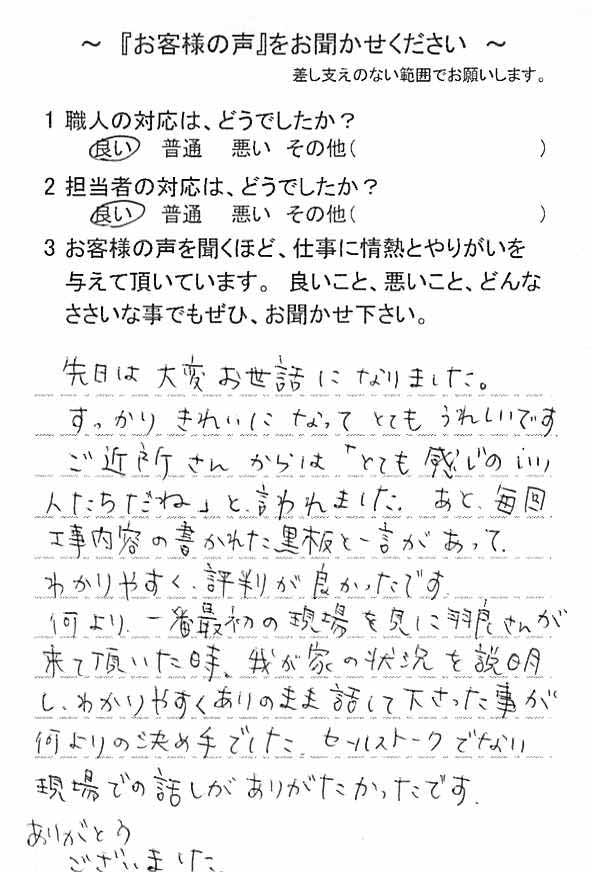 ～ 『お客様の声』をお聞かせください ～
差し支えのない範囲でお願いします。
1 職人の対応は、どうでしたか？
良い 普通 悪い その他( )
2 担当者の対応は、どうでしたか？
良い 普通 悪い その他( )
3 お客様の声を聞くほど、仕事に情熱とやりがいを
与えて頂いています。 良いこと、悪いこと、どんな
ささいな事でもぜひ、お聞かせ下さい。
先日は 大変 お世話に なりました。
すっかり きれいに なって とても うれしいです
ご近所さん からは「とても 感じの いい
人たちだね」と、言われました。 あと、毎回
工事内容の書かれた黒板と一言があって、
わかりやすく、評判が良かったです。
何より、一番最初の現場を見に羽良さんが
来て頂いた時、我が家の状況を説明
し、わかりやすくありのまま話して下さった事が
何よりの決め手でした。セールストークでない
現場での話しがありがたかったです。
ありがとう
ございました。